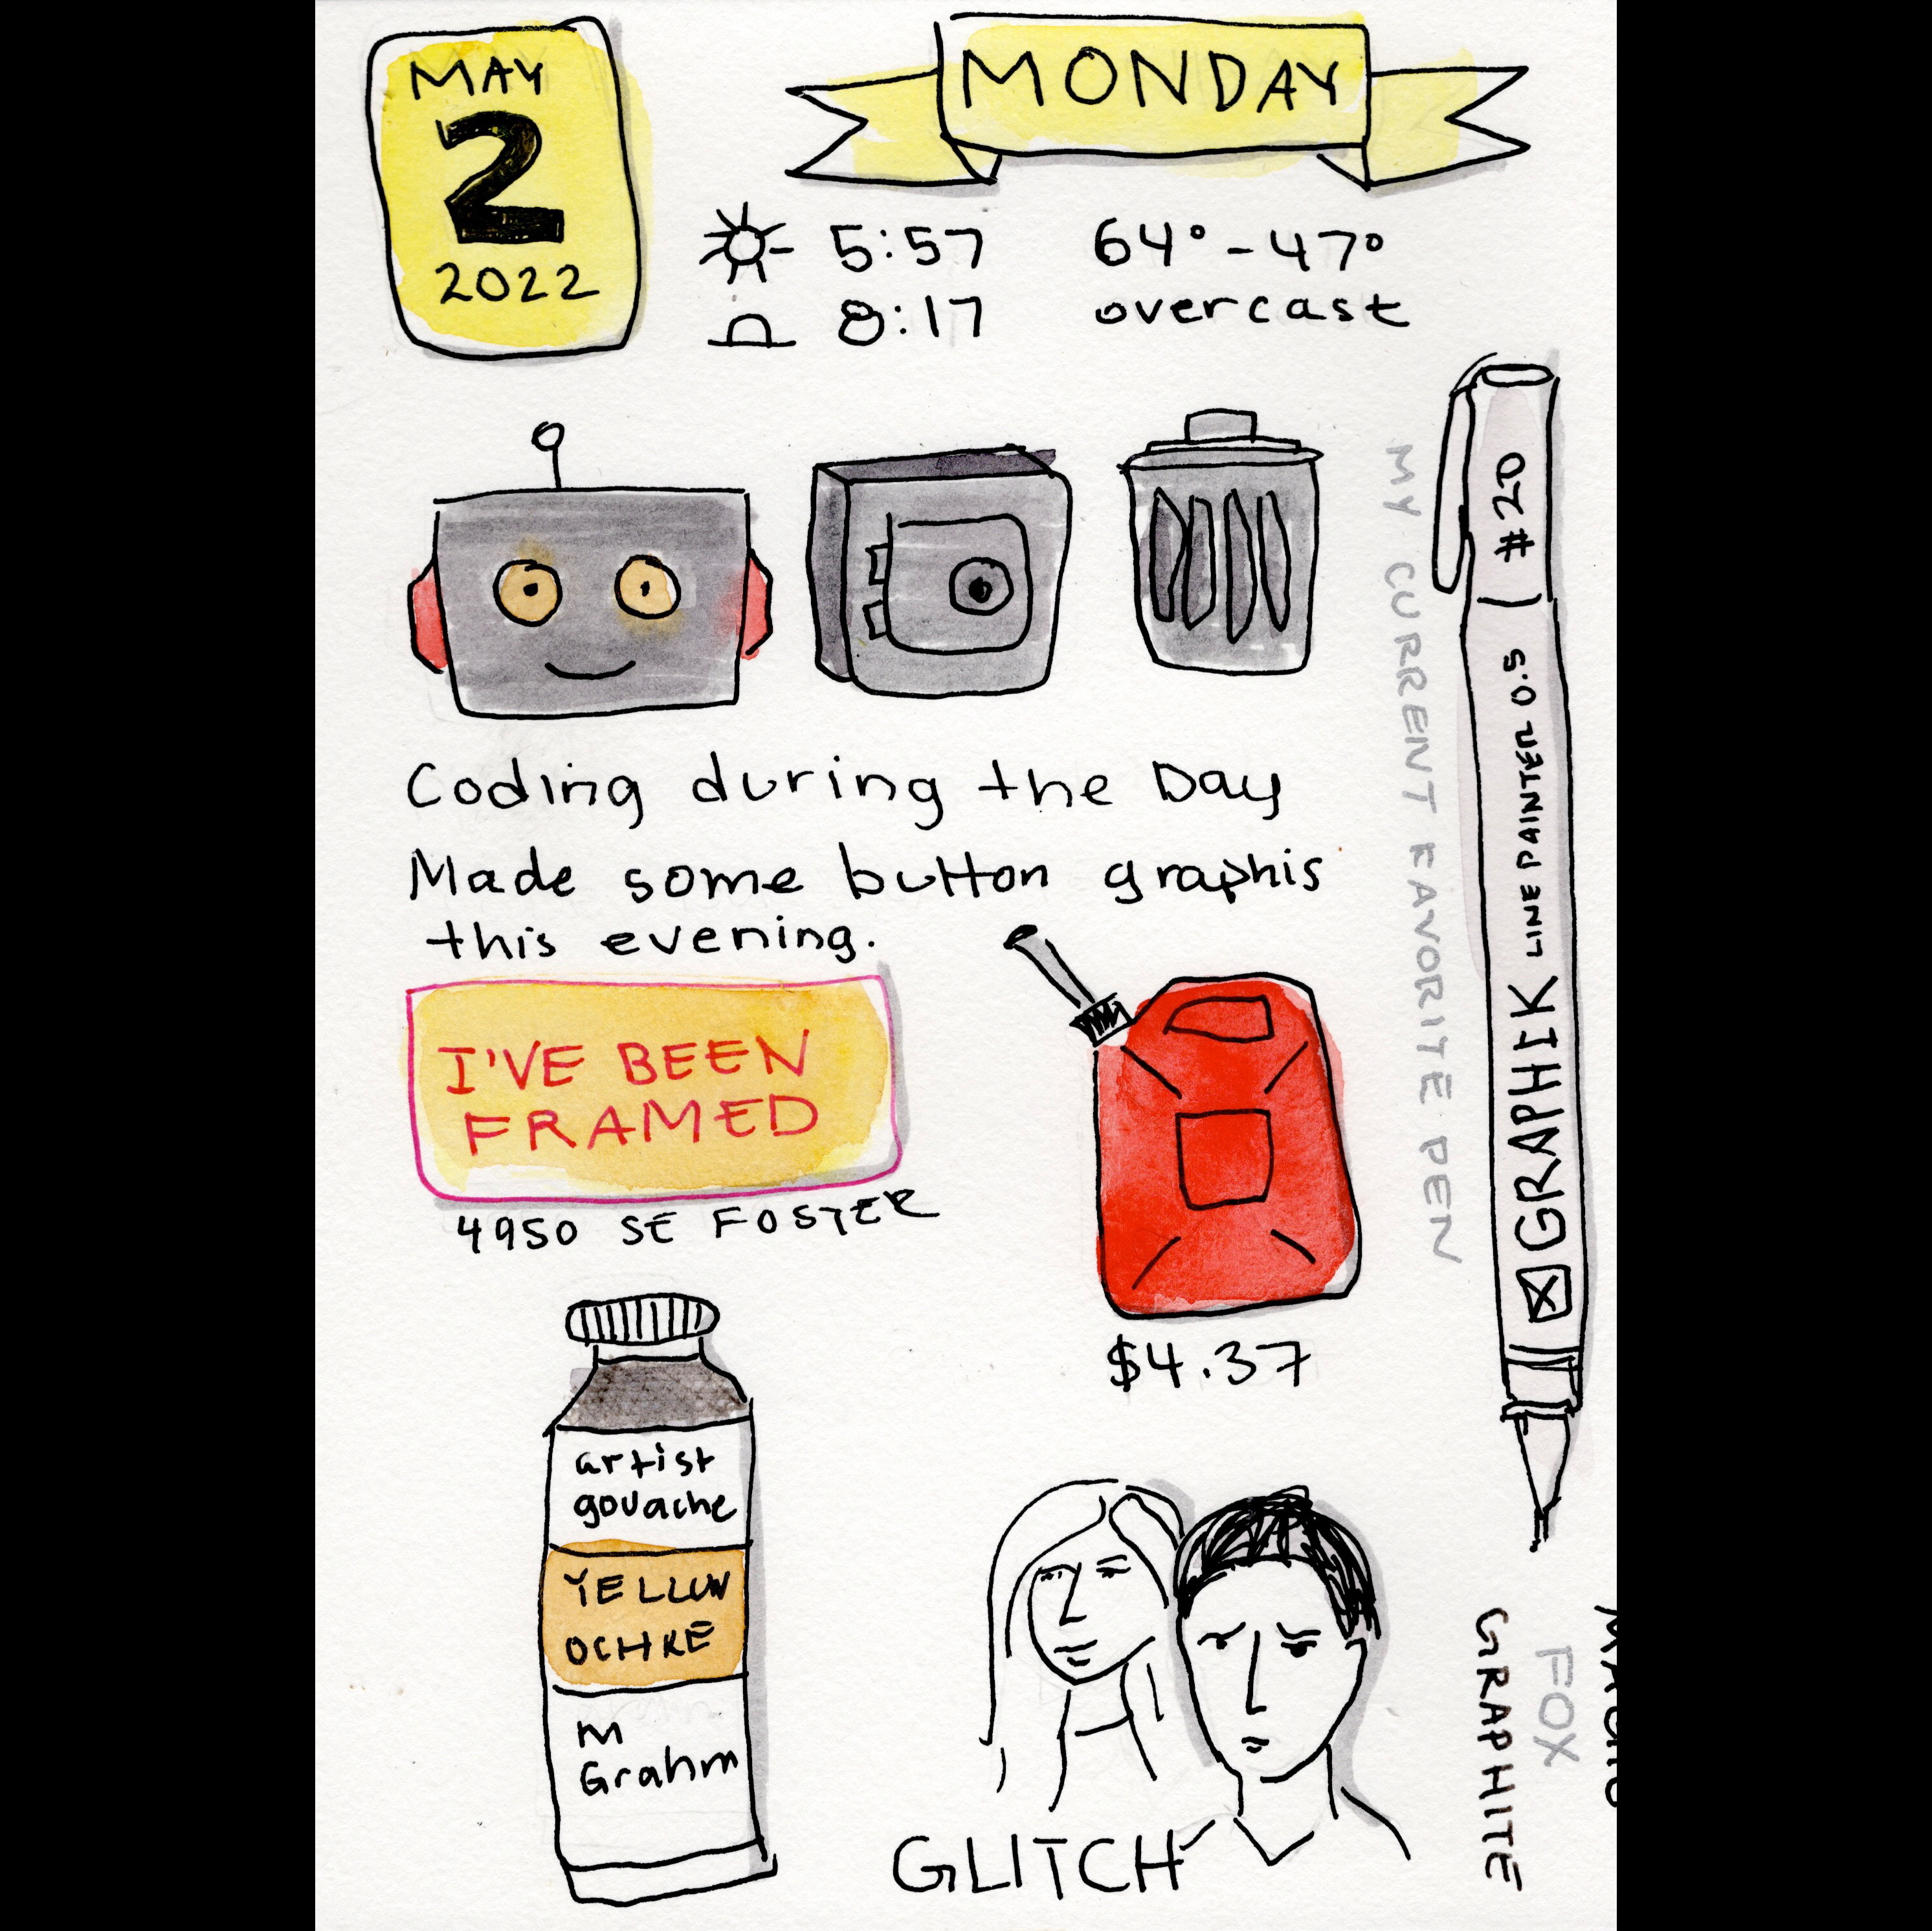 MAY
2
2022
MONDAY
5:57
8:17
64° - 47°
overcast
Coding during the Day
Made some button graphis
this evening.
I'VE BEEN
FRAMED
4950 SE FOSTER
$4.37
MY CURRENT FAVORITE PEN
GRAPHIK LINE PAINTER 0.5 #20
artist
gouache
YELLOW
OCHRE
M
Grahm
GLITCH
GRAPHITE
FOX